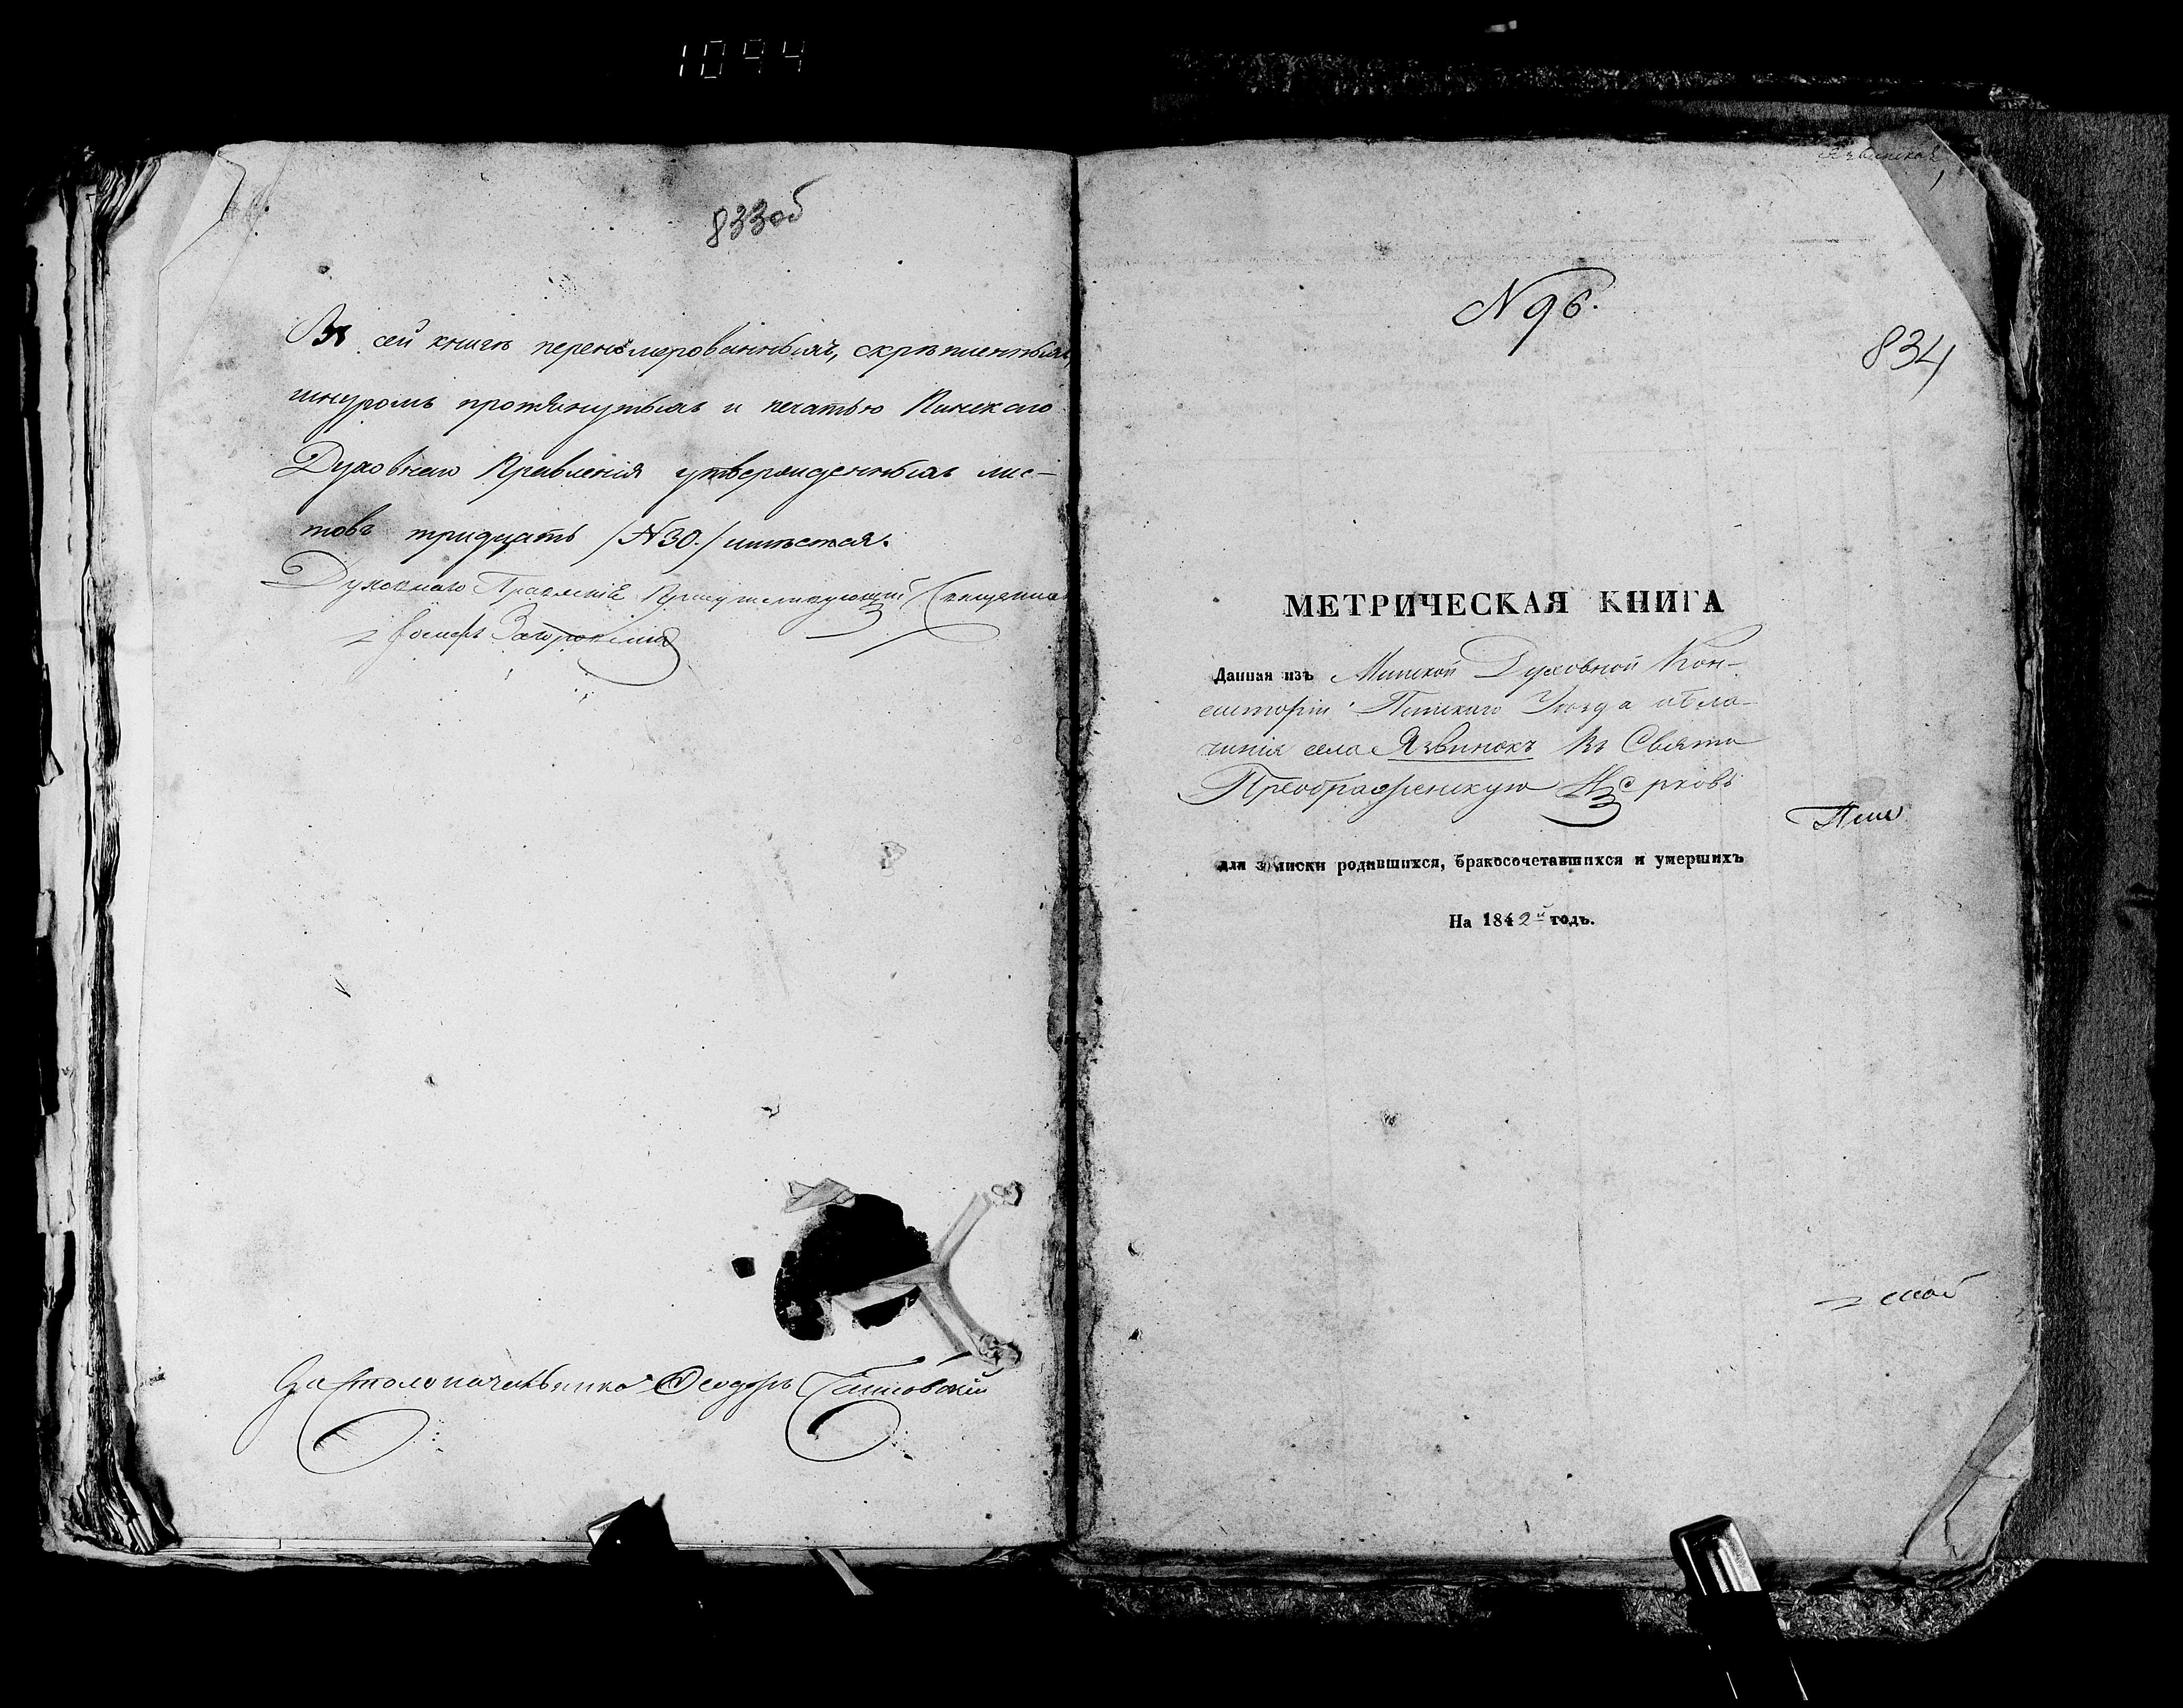 1094
833об
Въ сей книгѣ перенумерованныхъ, скрѣпленныхъ,
шнуромъ протянутыхъ и печатью Пинскаго
Духовнаго Правленія утвержденныхъ лис-
товъ тридцать /N30./ имѣется.
Духовнаго Правленія Присутствующій Священникъ
Іосифъ
За Столоначальника Ѳеодоръ
Язвинская
N 96.
834
МЕТРИЧЕСКАЯ КНИГА
Данная изъ Минской Духовной Кон-
систоріи Пинскаго Уѣзда
чинія села Язвинокъ въ Свято
Преображенскую Церковь
для записки родившихся, бракосочетавшихся и умершихъ
На 1842й годъ.